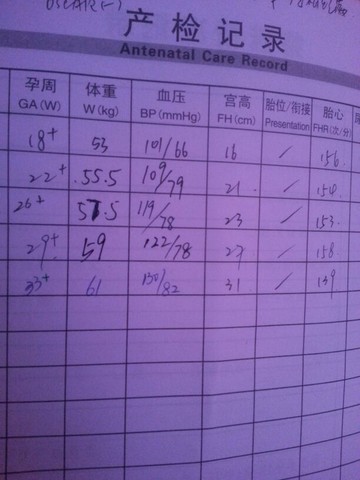 OSCAR(-)
产检记录
Antenatal Care Record
孕周 体重 血压 宫高 胎位/衔接 胎心
GA(W) W(kg) BP(mmHg) FH(cm) Presentation FHR(次/分)
18+ 53 101/66 16 / 156
22+ 55.5 109/79 21 / 154
26+ 57.5 119/78 23 / 153
29+ 59 122/78 27 / 158
33+ 61 130/82 31 / 139